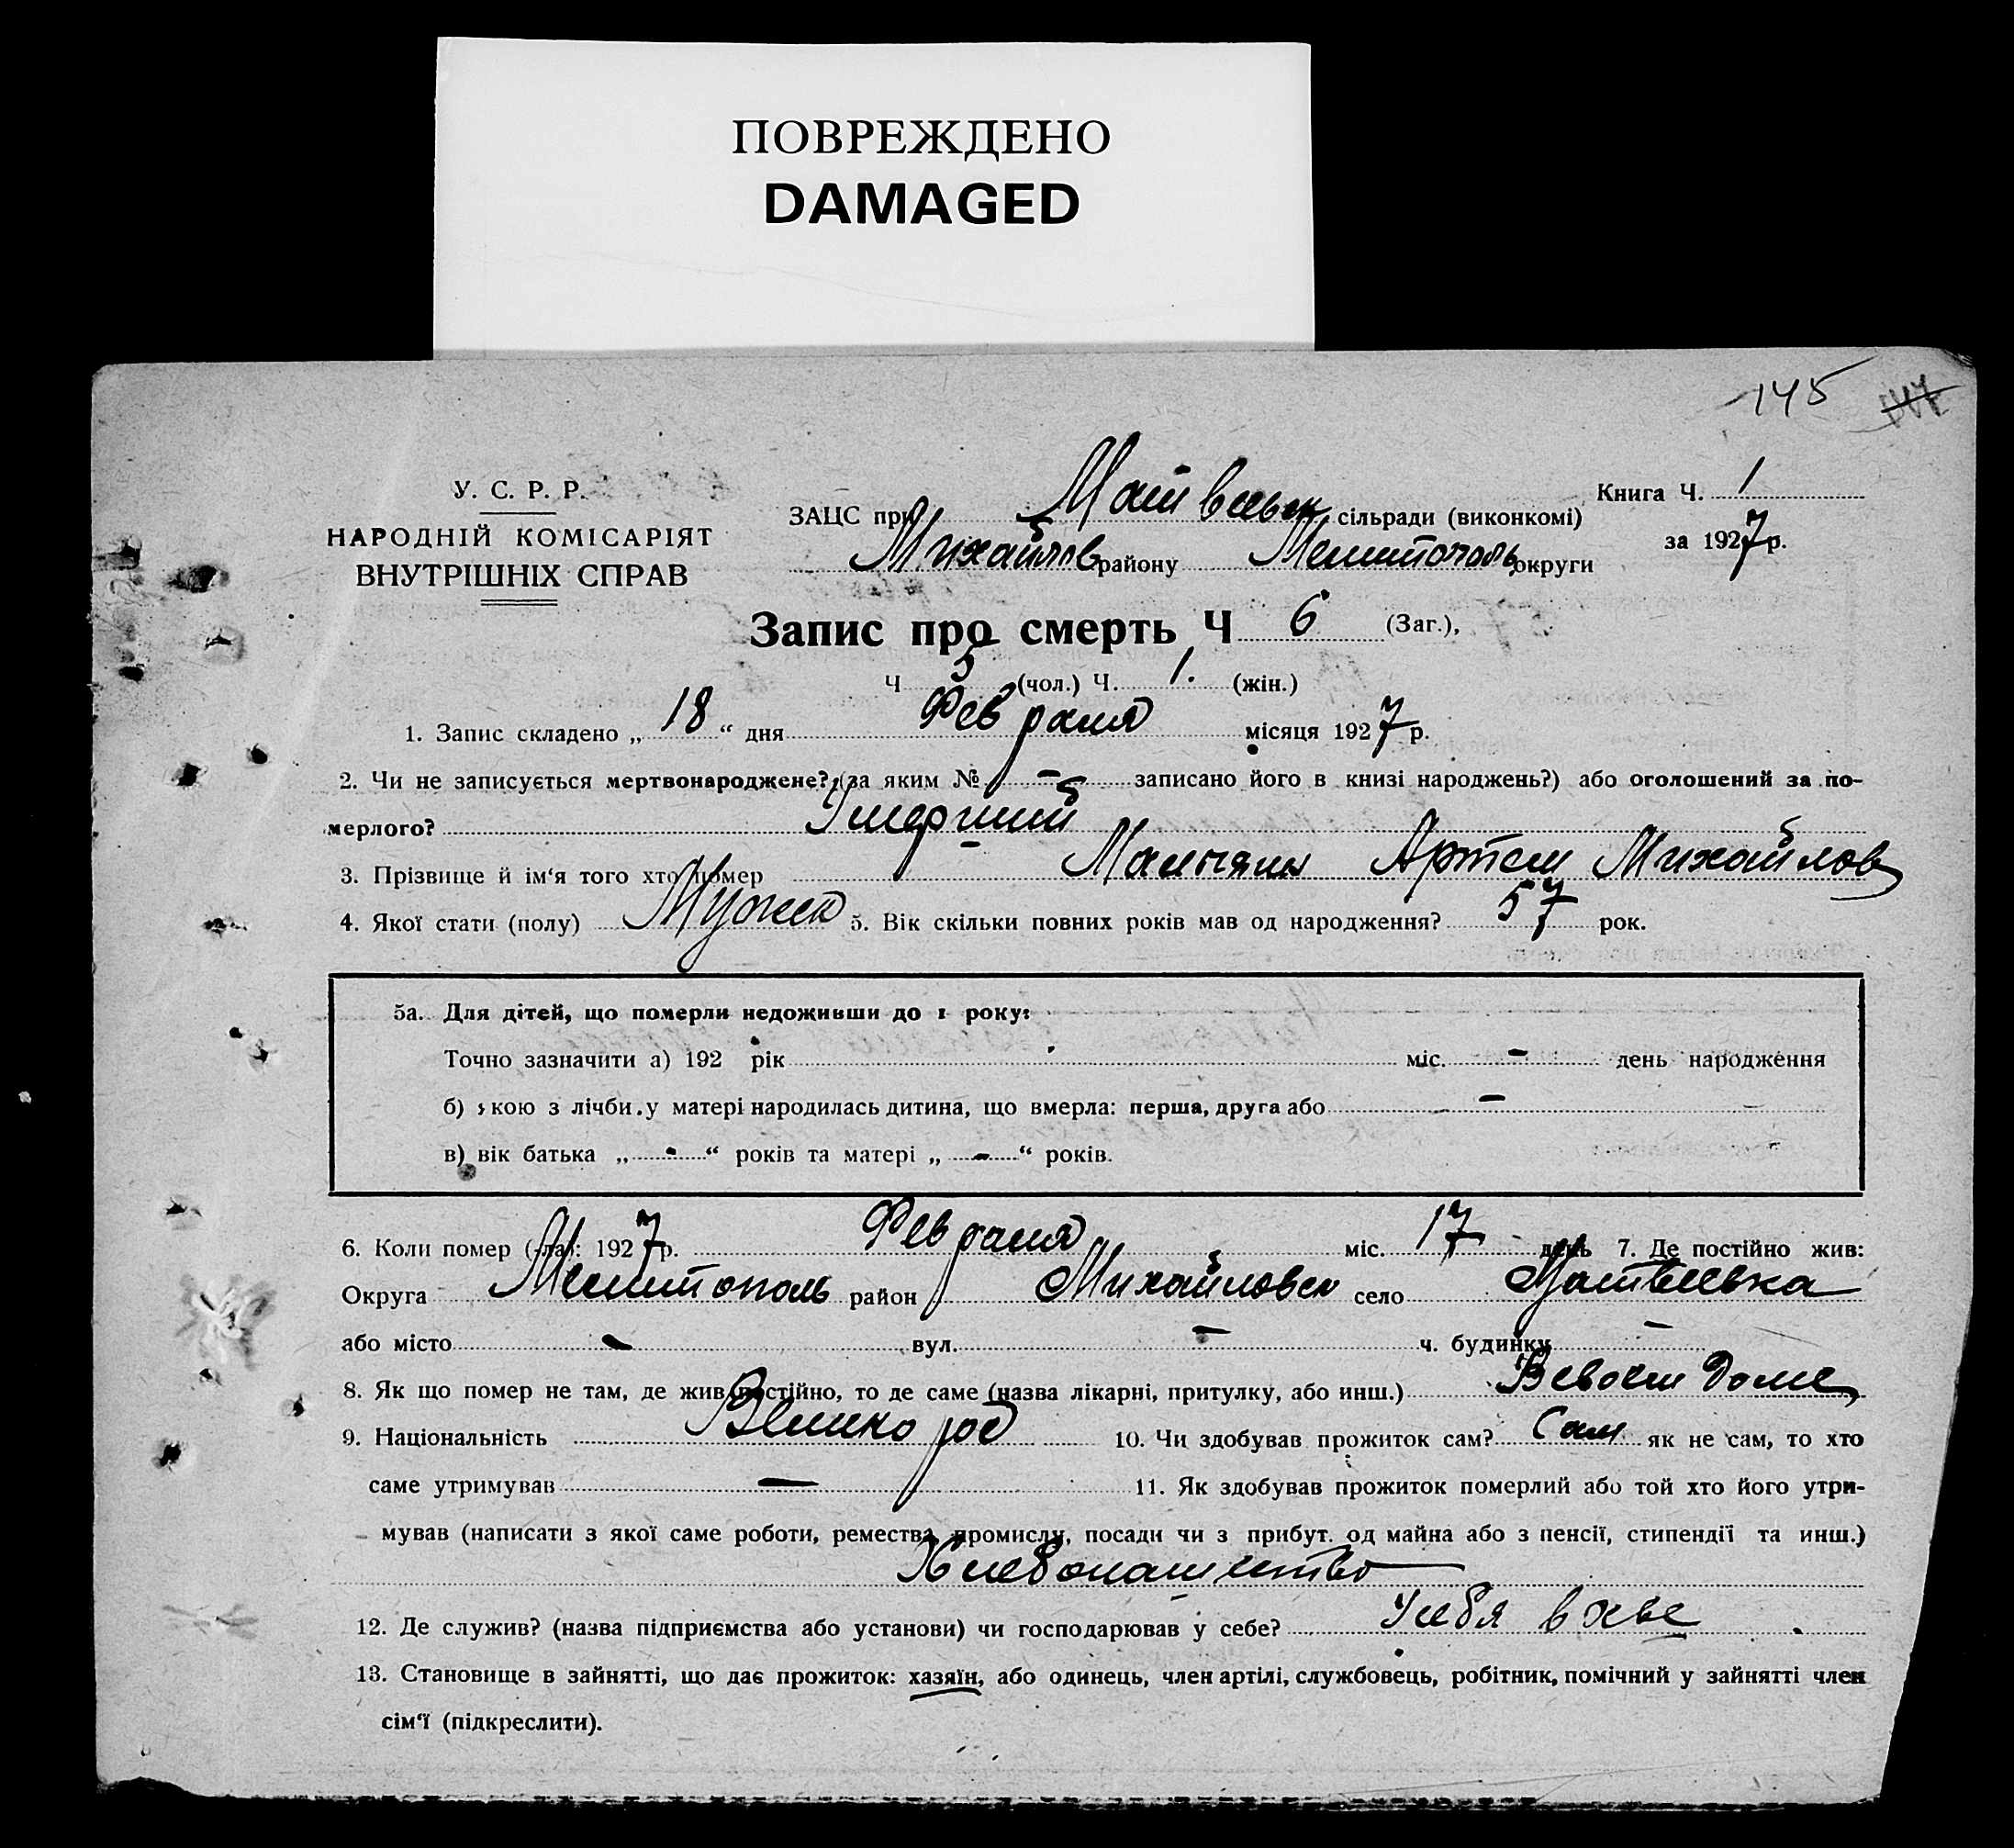 ПОВРЕЖДЕНО
DAMAGED
145 147
У. С. Р. Р.
НАРОДНІЙ КОМІСАРІЯТ
ВНУТРІШНІХ СПРАВ
ЗАЦС при Матвеевск сільради (виконкомі)
Михайлов району Мелитополь округи
Книга Ч. 1
за 1927 р.
Запис про смерть Ч 6 (Заг.),
Ч 5 (чол.) Ч. 1. (жін.)
1. Запис складено „ 18 “ дня Февраля місяця 1927 р.
2. Чи не записується мертвонароджене? (за яким № - записано його в книзі народжень?) або оголошений за по-
мерлого? Умерший
3. Прізвище й ім‘я того хто помер Артем Михайлов
4. Якої стати (полу) Мужск 5. Вік скільки повних років мав од народження? 57 рок.
5а. Для дітей, що померли недоживши до 1 року:
Точно зазначити а) 192 рік міс. - день народження
б) якою з лічби у матері народилась дитина, що вмерла: перша, друга або -
в) вік батька „ - “ років та матері „ - “ років.
6. Коли помер (-ла): 1927 р. Февраля міс. 17 день 7. Де постійно жив:
Округа Мелитополь район Михайловск село Матвеевка
або місто - вул. - ч. будинку -
8. Як що помер не там, де жив постійно, то де саме (назва лікарні, притулку, або инш.) Всвоем Доме
9. Національність Великорос 10. Чи здобував прожиток сам? Сам як не сам, то хто
саме утримував - 11. Як здобував прожиток померлий або той хто його утри-
мував (написати з якої саме роботи, ремества, промислу, посади чи з прибут. од майна або з пенсії, стипендії та инш.)
Хлебопашество
12. Де служив? (назва підприємства або установи) чи господарював у себе? Усебя в хве
13. Становище в зайнятті, що дає прожиток: хазяїн, або одинець, член артілі, службовець, робітник, помічний у зайнятті член
сім‘ї (підкреслити).